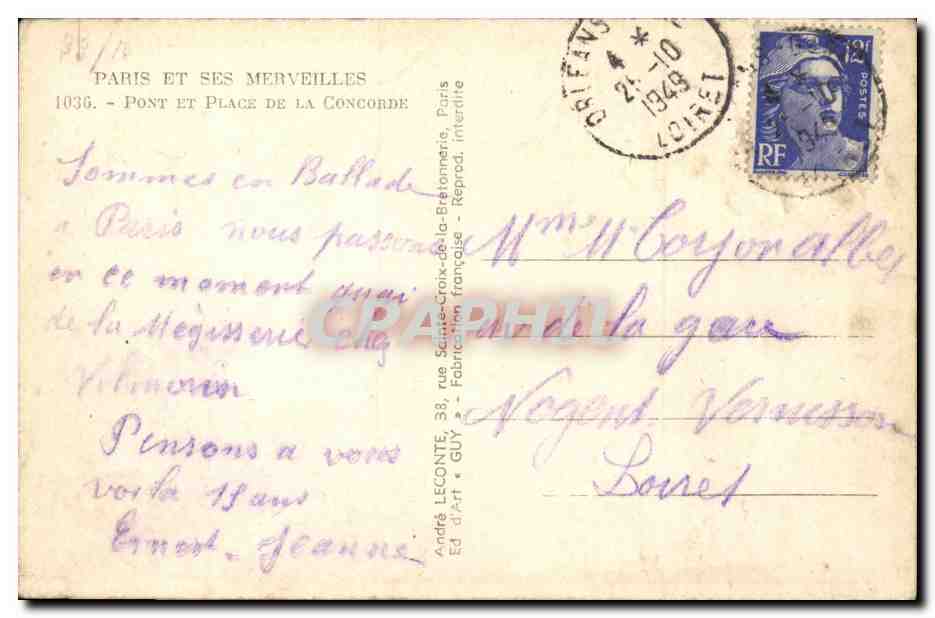 PARIS ET SES MERVEILLES
1036. - PONT ET PLACE DE LA CONCORDE
Sommes en Ballade
a Paris nous passons
en ce moment quai
de la Mégisserie chez
Vilmorin
Pensons a vous
voila 15 ans
Ernest - Jeanne
André LECONTE, 38, rue Sainte-Croix-de-la-Bretonnerie, Paris
Ed d'Art « GUY » - Fabrication française - Reprod. interdite
ORLEANS
4 *
-10
1949
LOIRET
12F
POSTES
RF
Mme M
de la gare
Nogent Vernisson
Loiret
CPAPHIL